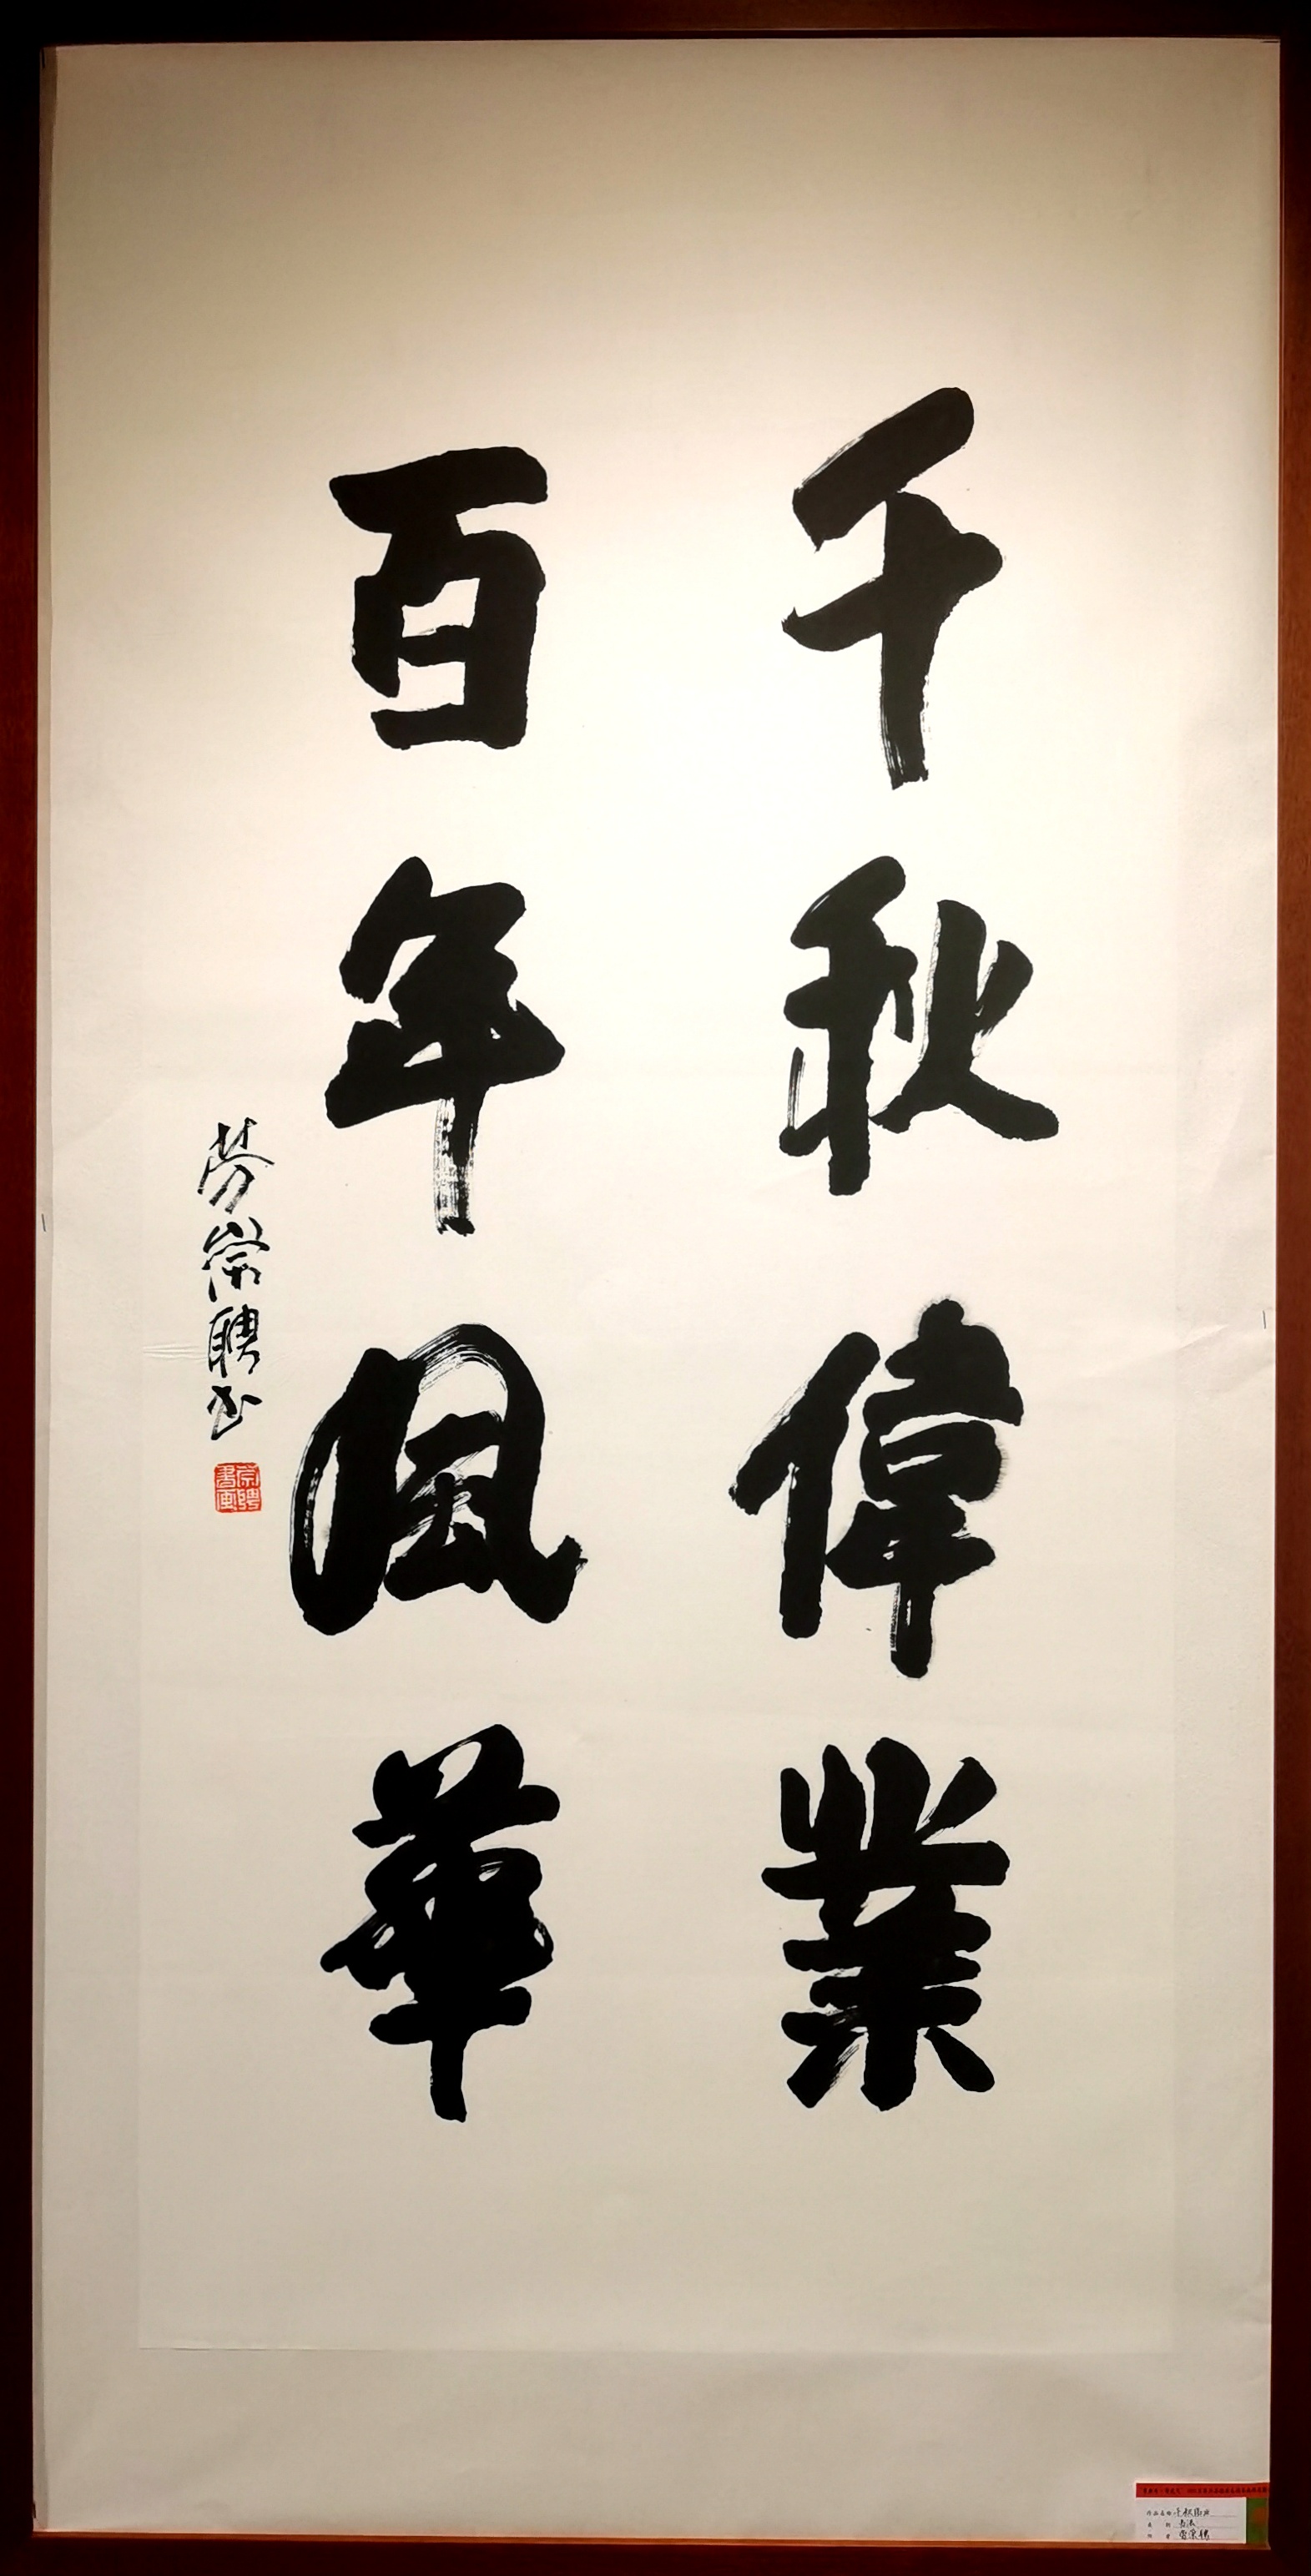 千秋偉業
百年風華
劳崇聘书
崇聘
書画
作品名称 千秋伟业
类别 书法
作者 劳崇聘